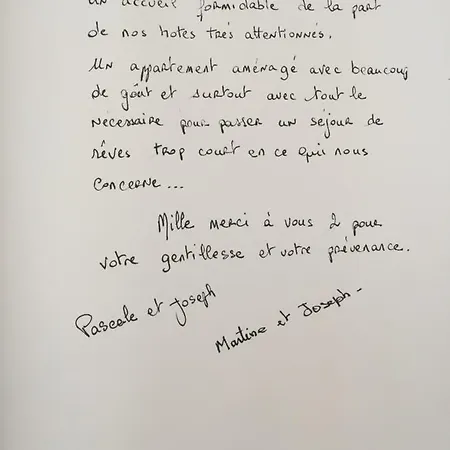 Un accueil formidable de la part
de nos hotes très attentionnés.
Un appartement aménagé avec beaucoup
de goût et surtout avec tout le
necessaire pour passer un séjour de
rêves trop court en ce qui nous
concerne...
Mille merci à vous 2 pour
votre gentillesse et votre prévenance.
Pascale et Joseph
Martine et Joseph -